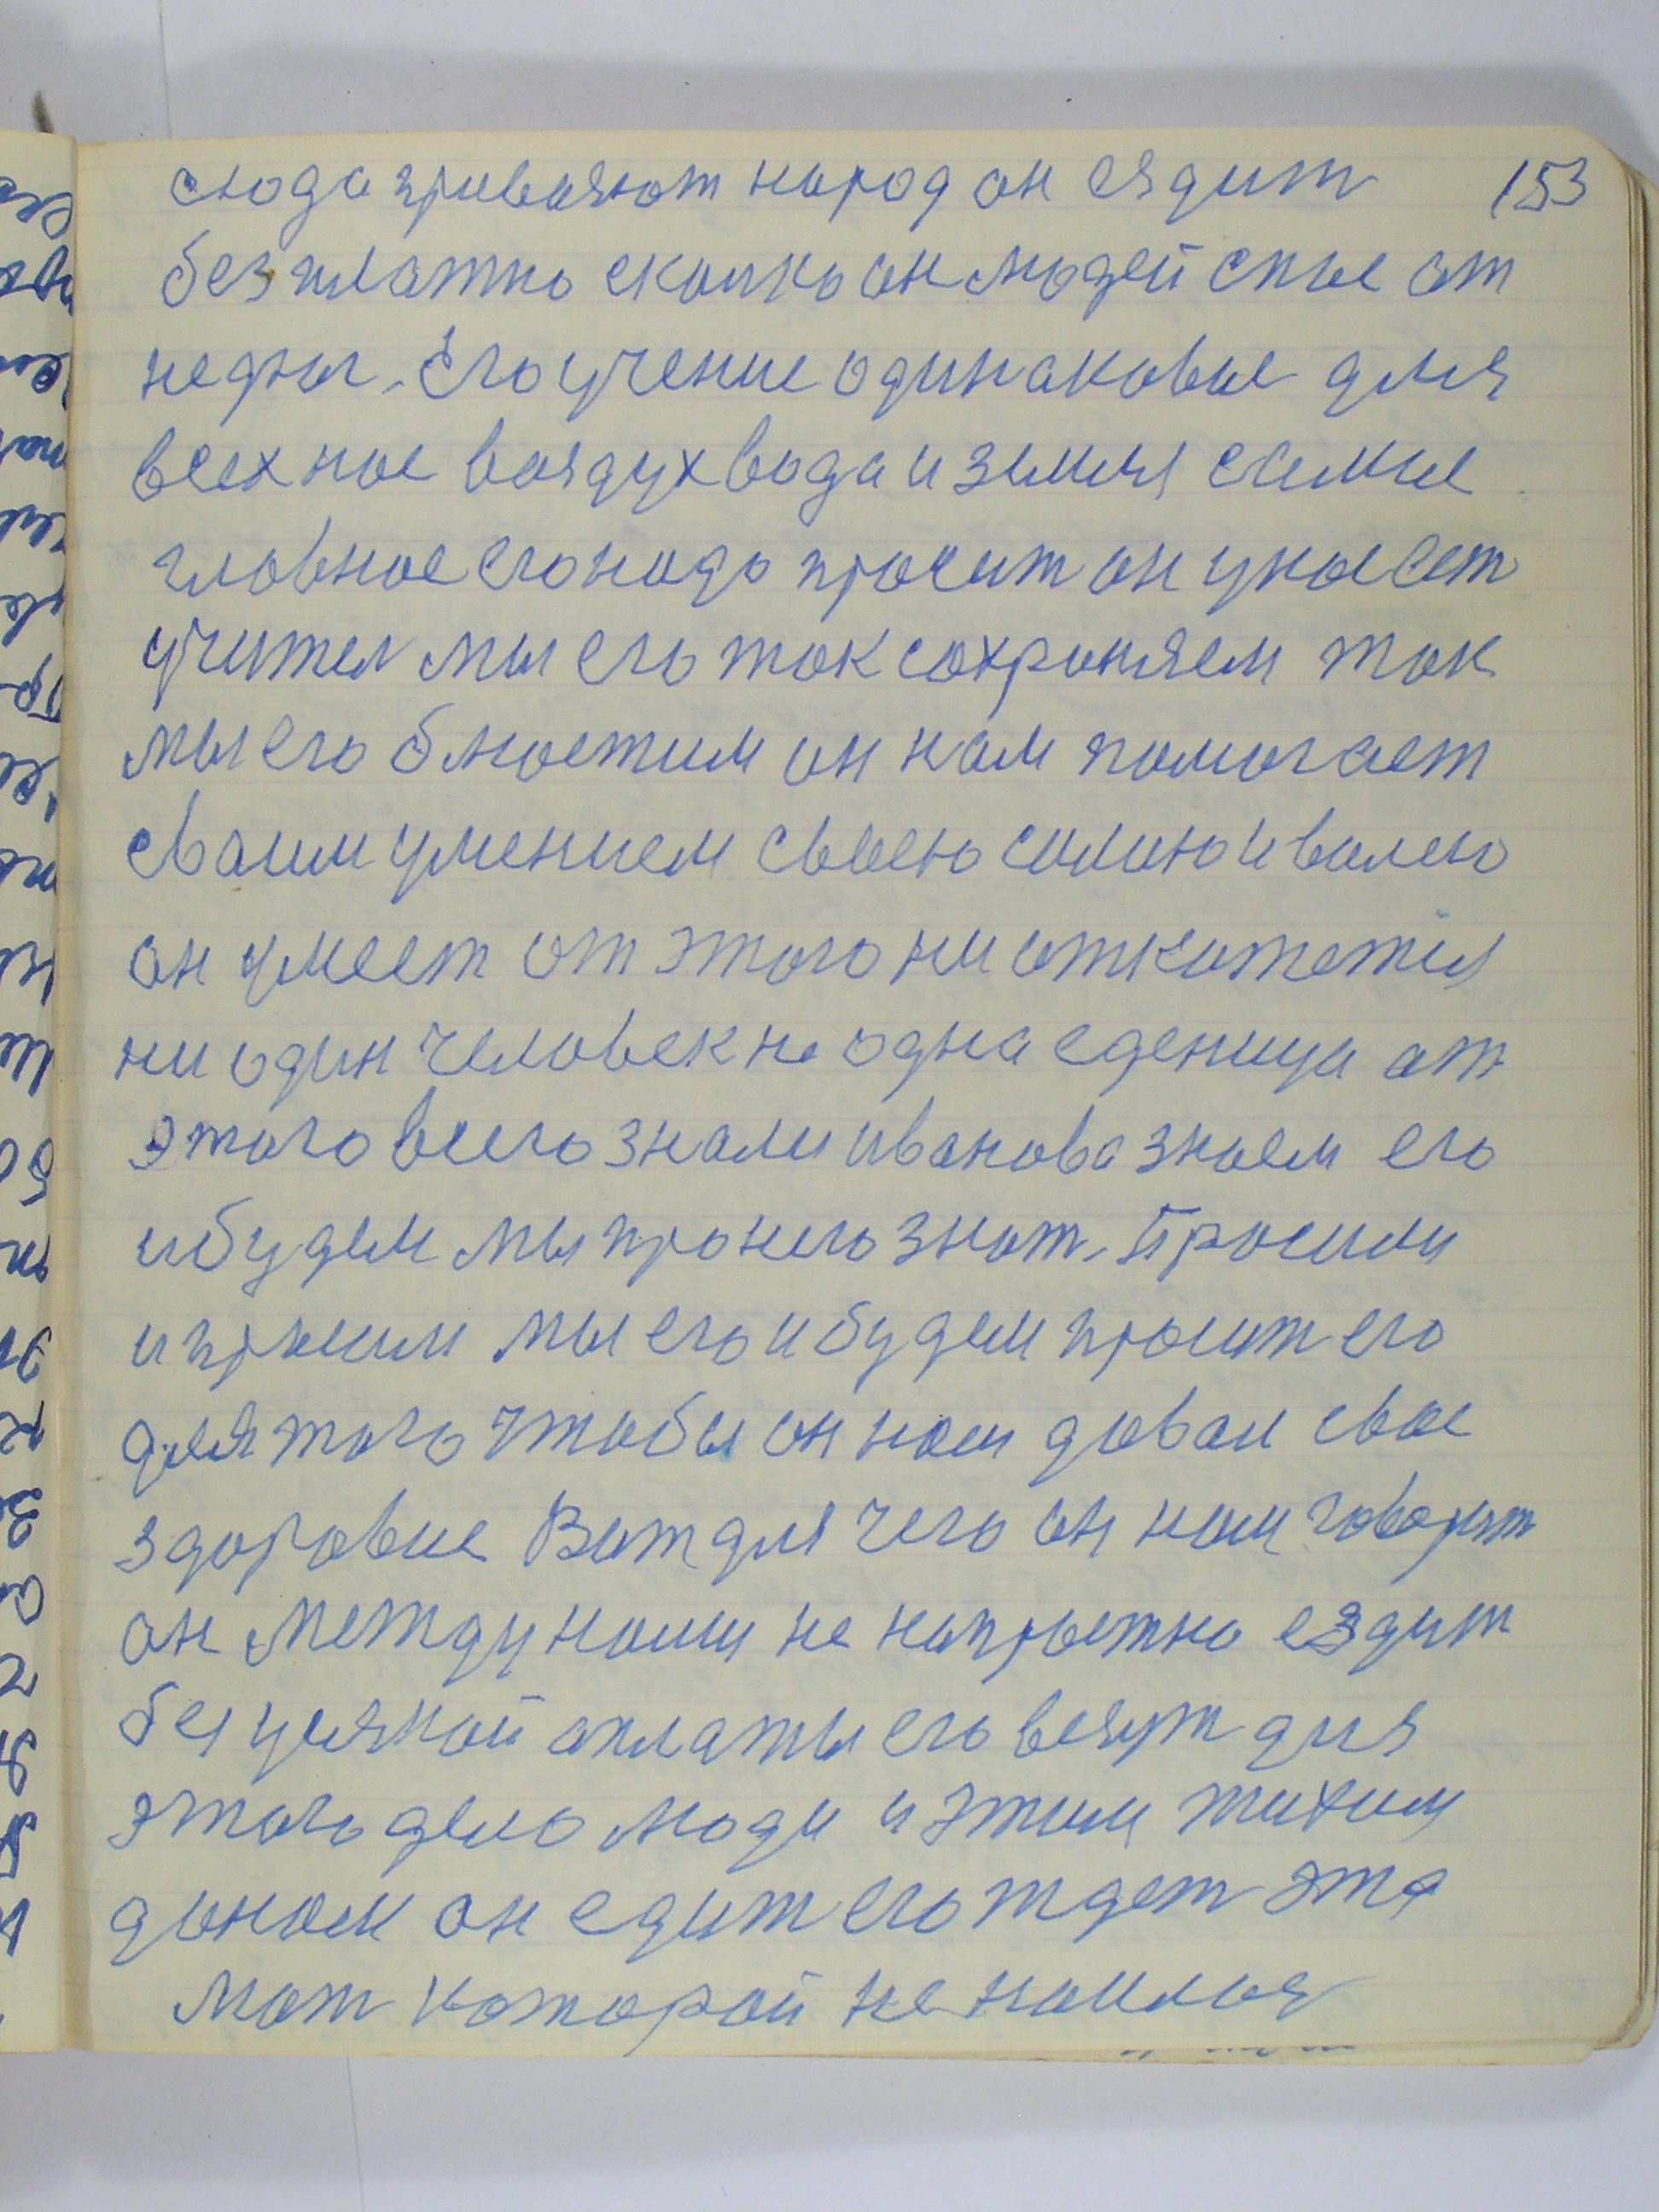 153
сюда приваяют народ он ездит
безплатно сколко он людей спас от
недуг. Его учение одинаковые для
всех нас воздух вода и земля самые
главное его надо просит он унас ест
учител мы его так сохраняем так
мы его блюстим он нам помогает
сваим умением своею силою и волею
он умеет от этого ни откажется
ни один человек не одна еденица от
этого всего знали иванова знаем его
и будем мы про него знат. Просили
и просим мы его и будем просит его
для того чтобы он нам давал свое
здоровие Вот для чего он нам говорит
он между нами не напрастно ездит
без усякой оплаты его везут для
этого дела люди и этим тихим
доном он едит его ждет эта
мат которой не